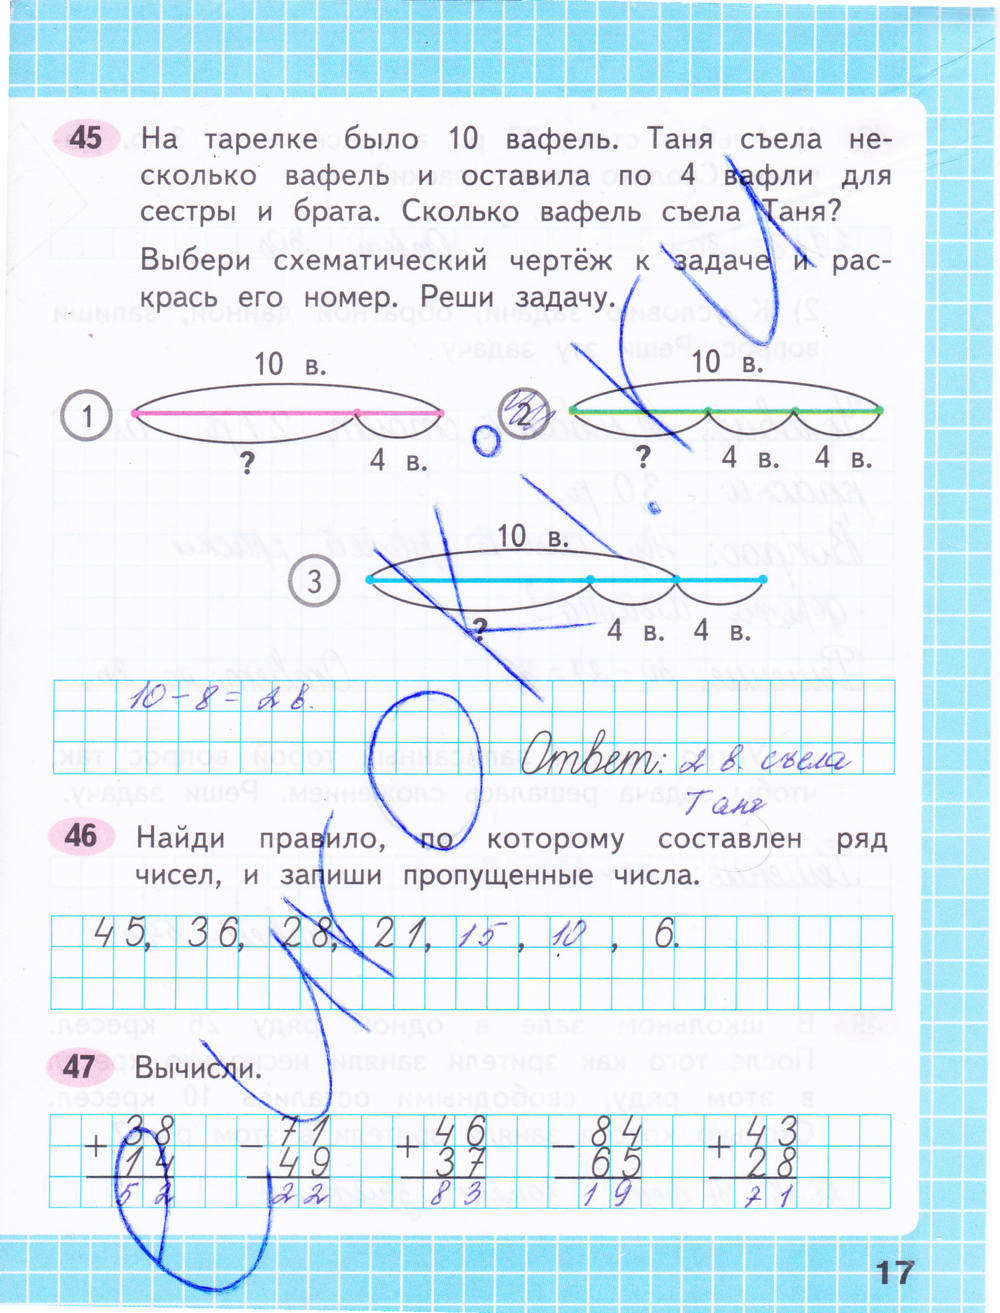 45 На тарелке было 10 вафель. Таня съела не-
сколько вафель и оставила по 4 вафли для
сестры и брата. Сколько вафель съела Таня?
Выбери схематический чертёж к задаче и рас-
крась его номер. Реши задачу.
10 в. 10 в.
1 2
? 4 в. ? 4 в. 4 в.
10 в.
3
? 4 в. 4 в.
10 - 8 = 2 в.
Ответ: 2 в. съела
Таня
46 Найди правило, по которому составлен ряд
чисел, и запиши пропущенные числа.
45, 36, 28, 21, 15, 10, 6.
47 Вычисли.
+ 38 - 71 + 46 - 84 + 43
14 49 37 65 28
52 22 83 19 71
17